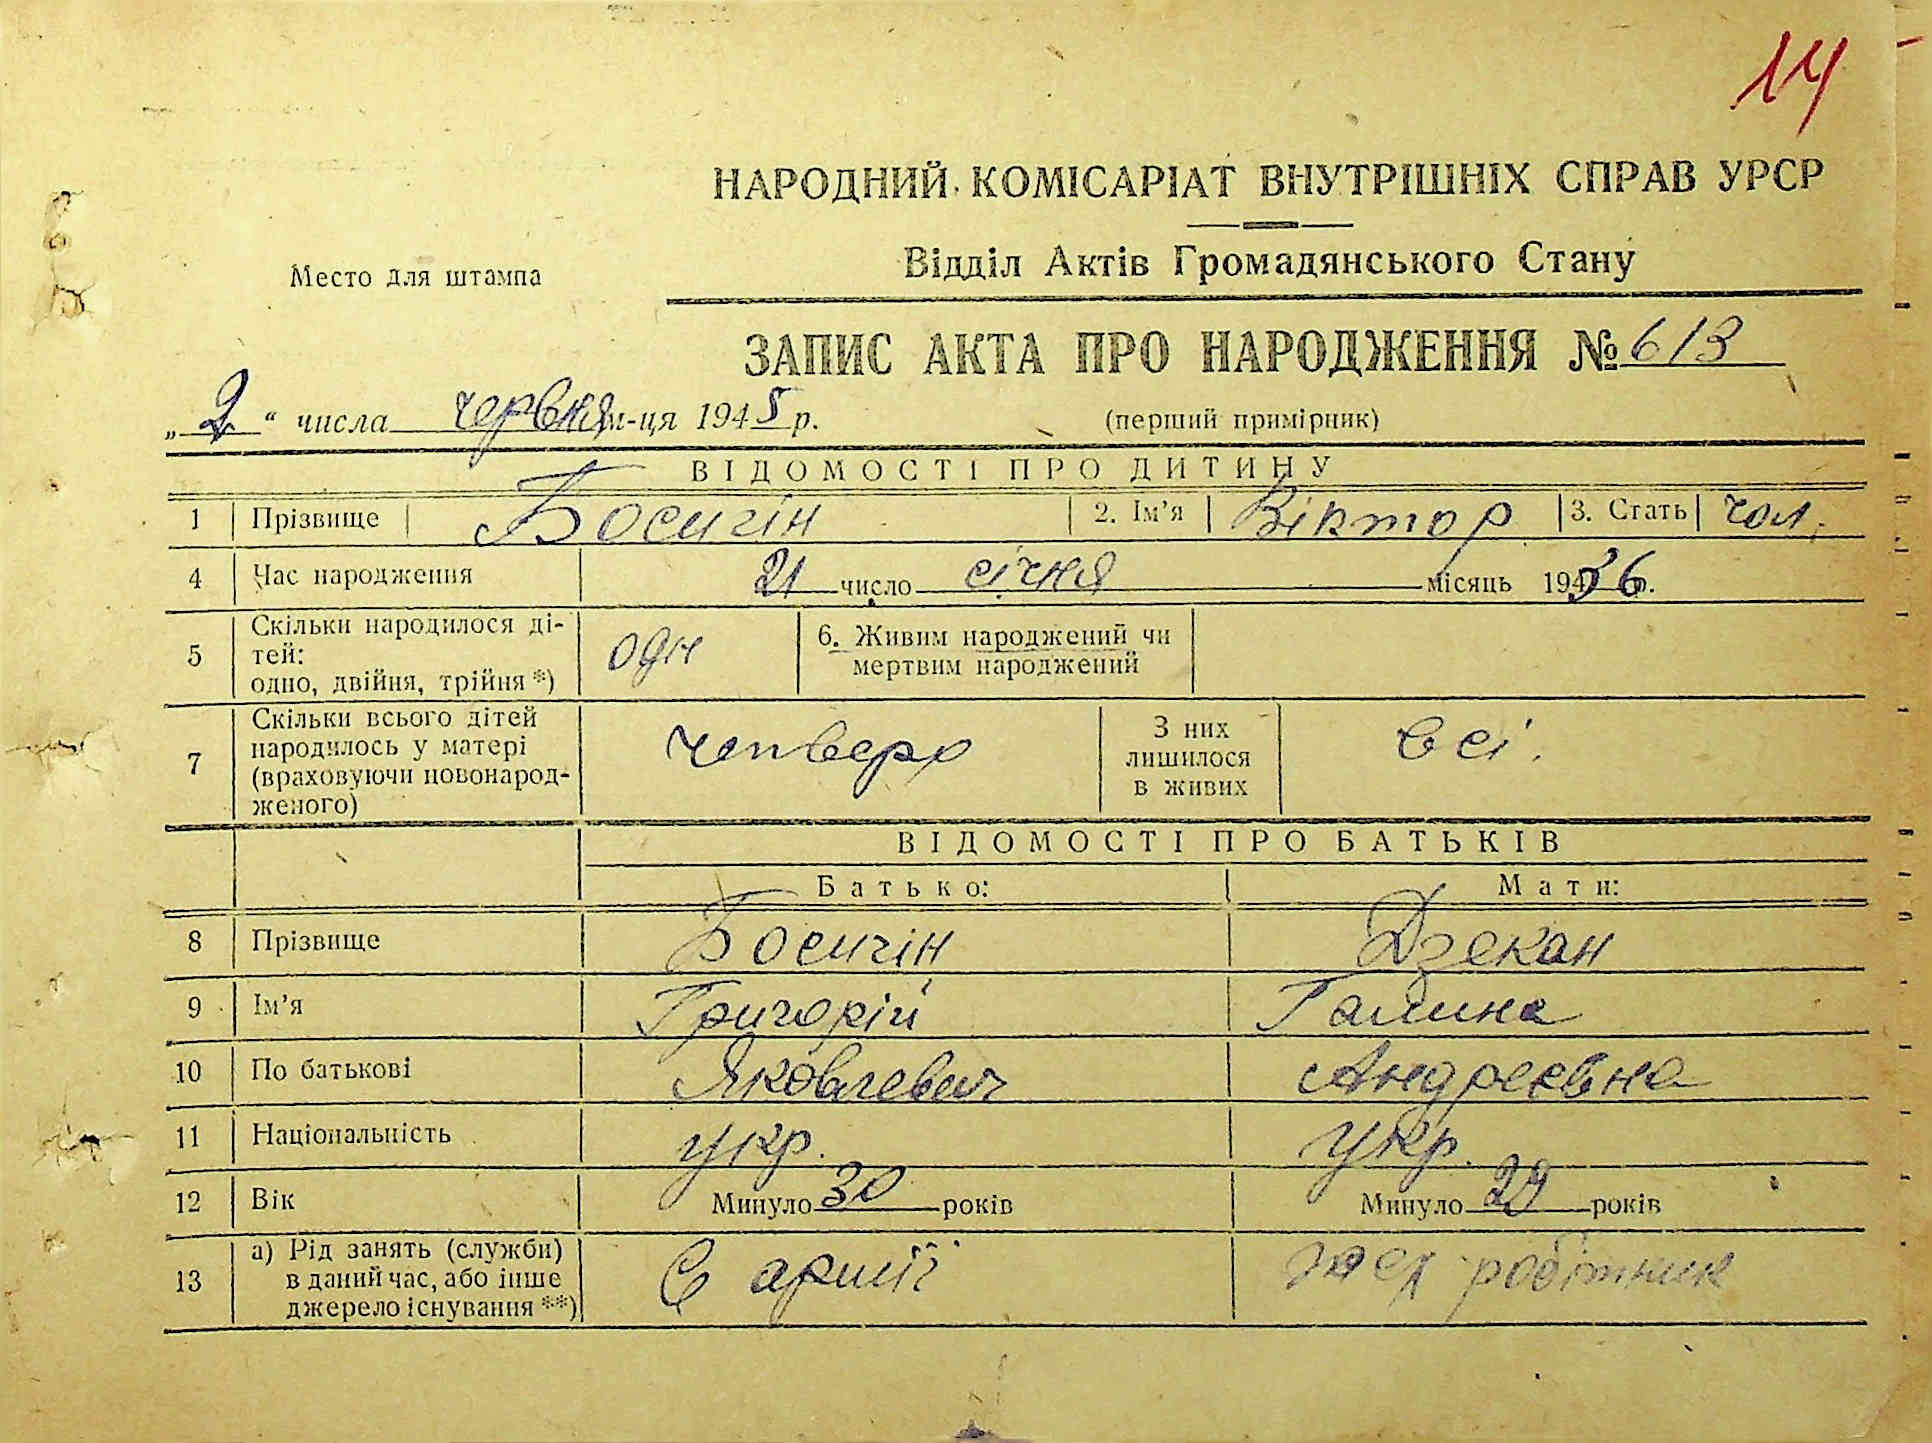 14
НАРОДНИЙ КОМІСАРІАТ ВНУТРІШНІХ СПРАВ УРСР
Место для штампа
Відділ Актів Громадянського Стану
ЗАПИС АКТА ПРО НАРОДЖЕННЯ № 613
„2“ числа червня м-ця 1945 р.
(перший примірник)
ВІДОМОСТІ ПРО ДИТИНУ
1 Прізвище Босигін 2. Ім’я Віктор 3. Стать чол.
4 Час народження 21 число січня місяць 1936 р.
5 Скільки народилося ді-
тей:
одно, двійня, трійня *)
одн
6. Живим народжений чи
мертвим народжений
7 Скільки всього дітей
народилось у матері
(враховуючи новонарод-
женого)
четверо
З них
лишилося
в живих
всі.
ВІДОМОСТІ ПРО БАТЬКІВ
Батько: Мати:
8 Прізвище Босигін Дзекан
9 Ім’я Григорій Галина
10 По батькові Яковлевич Андреевна
11 Національність укр. Укр.
12 Вік Минуло 30 років Минуло 29 років
13 а) Рід занять (служби)
в даний час, або інше
джерело існування **)
армії
робітник